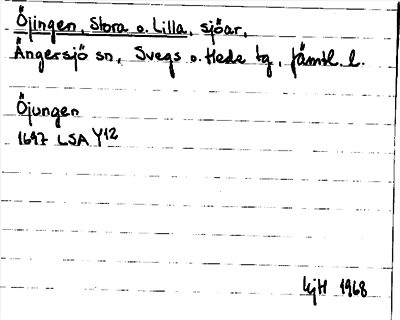 Öjingen, Stora o. Lilla, sjöar,
Ängersjö sn, Svegs o. Hede tg, Jämtl. l.
Öjungen
1697 LSA Y12
LjH 1968